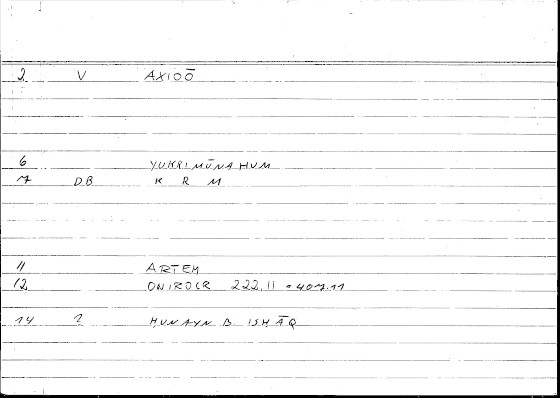 2 V AXIOŌ
6 YUKRIMŪNAHUM
7 DB K R M
11 ARTEM
12 ONIROCR 222,11 = 407.11
14 2 HUNAYN B ISHĀQ